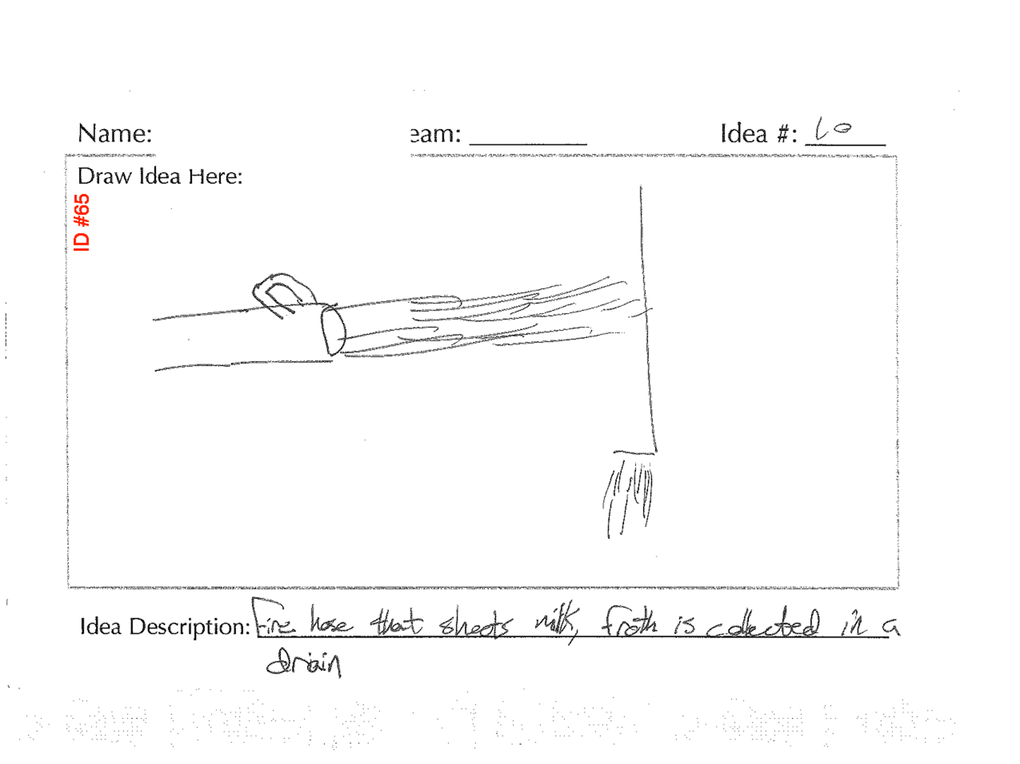 Name:
eam:
Idea #: 10
Draw Idea Here:
ID #65
Idea Description: Fire hose that shoots milk, froth is collected in a
drain